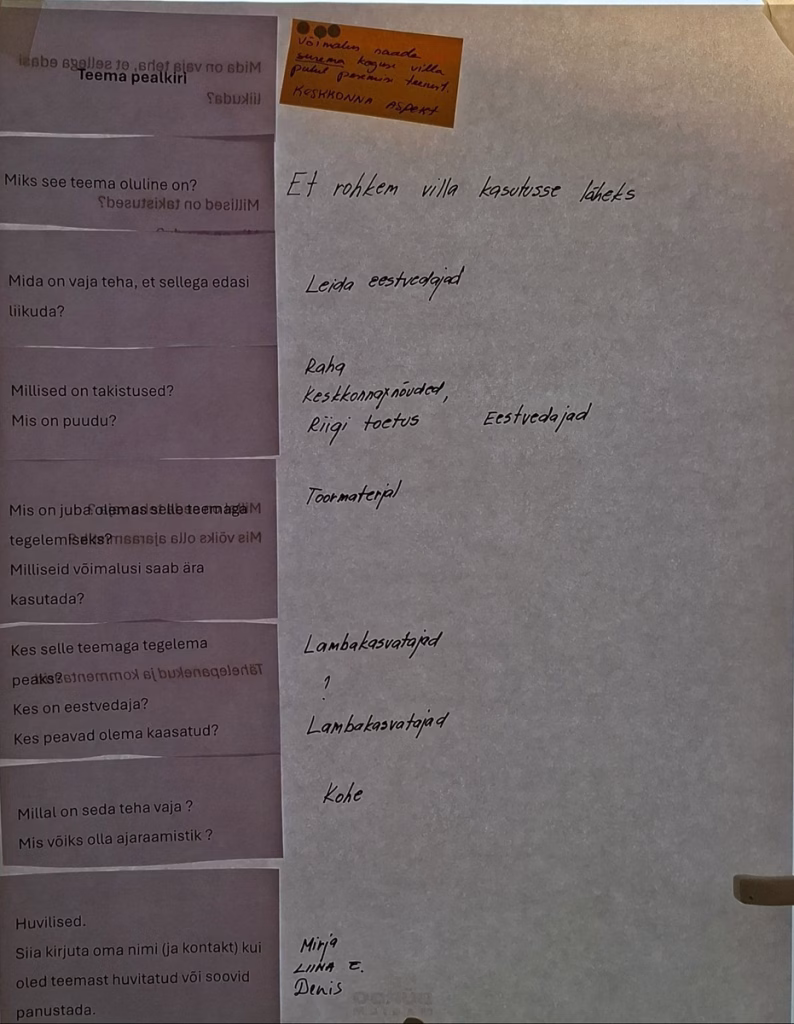 Teema pealkiri
Võimalus saada
suurema koguse villa
puhul pesemise teenust.
KESKKONNA ASPEKT
Miks see teema oluline on?
Et rohkem villa kasutusse läheks
Mida on vaja teha, et sellega edasi
liikuda?
Leida eestvedajad
Millised on takistused?
Mis on puudu?
Raha
Keskkonnanõuded,
Riigi toetus Eestvedajad
Mis on juba olemas selle teemaga
tegelemiseks?
Milliseid võimalusi saab ära
kasutada?
Toormaterjal
Kes selle teemaga tegelema
peaks?
Kes on eestvedaja?
Kes peavad olema kaasatud?
Lambakasvatajad
?
Lambakasvatajad
Millal on seda teha vaja ?
Mis võiks olla ajaraamistik ?
Kohe
Huvilised.
Siia kirjuta oma nimi (ja kontakt) kui
oled teemast huvitatud või soovid
panustada.
Mirja
LIINA E.
Denis